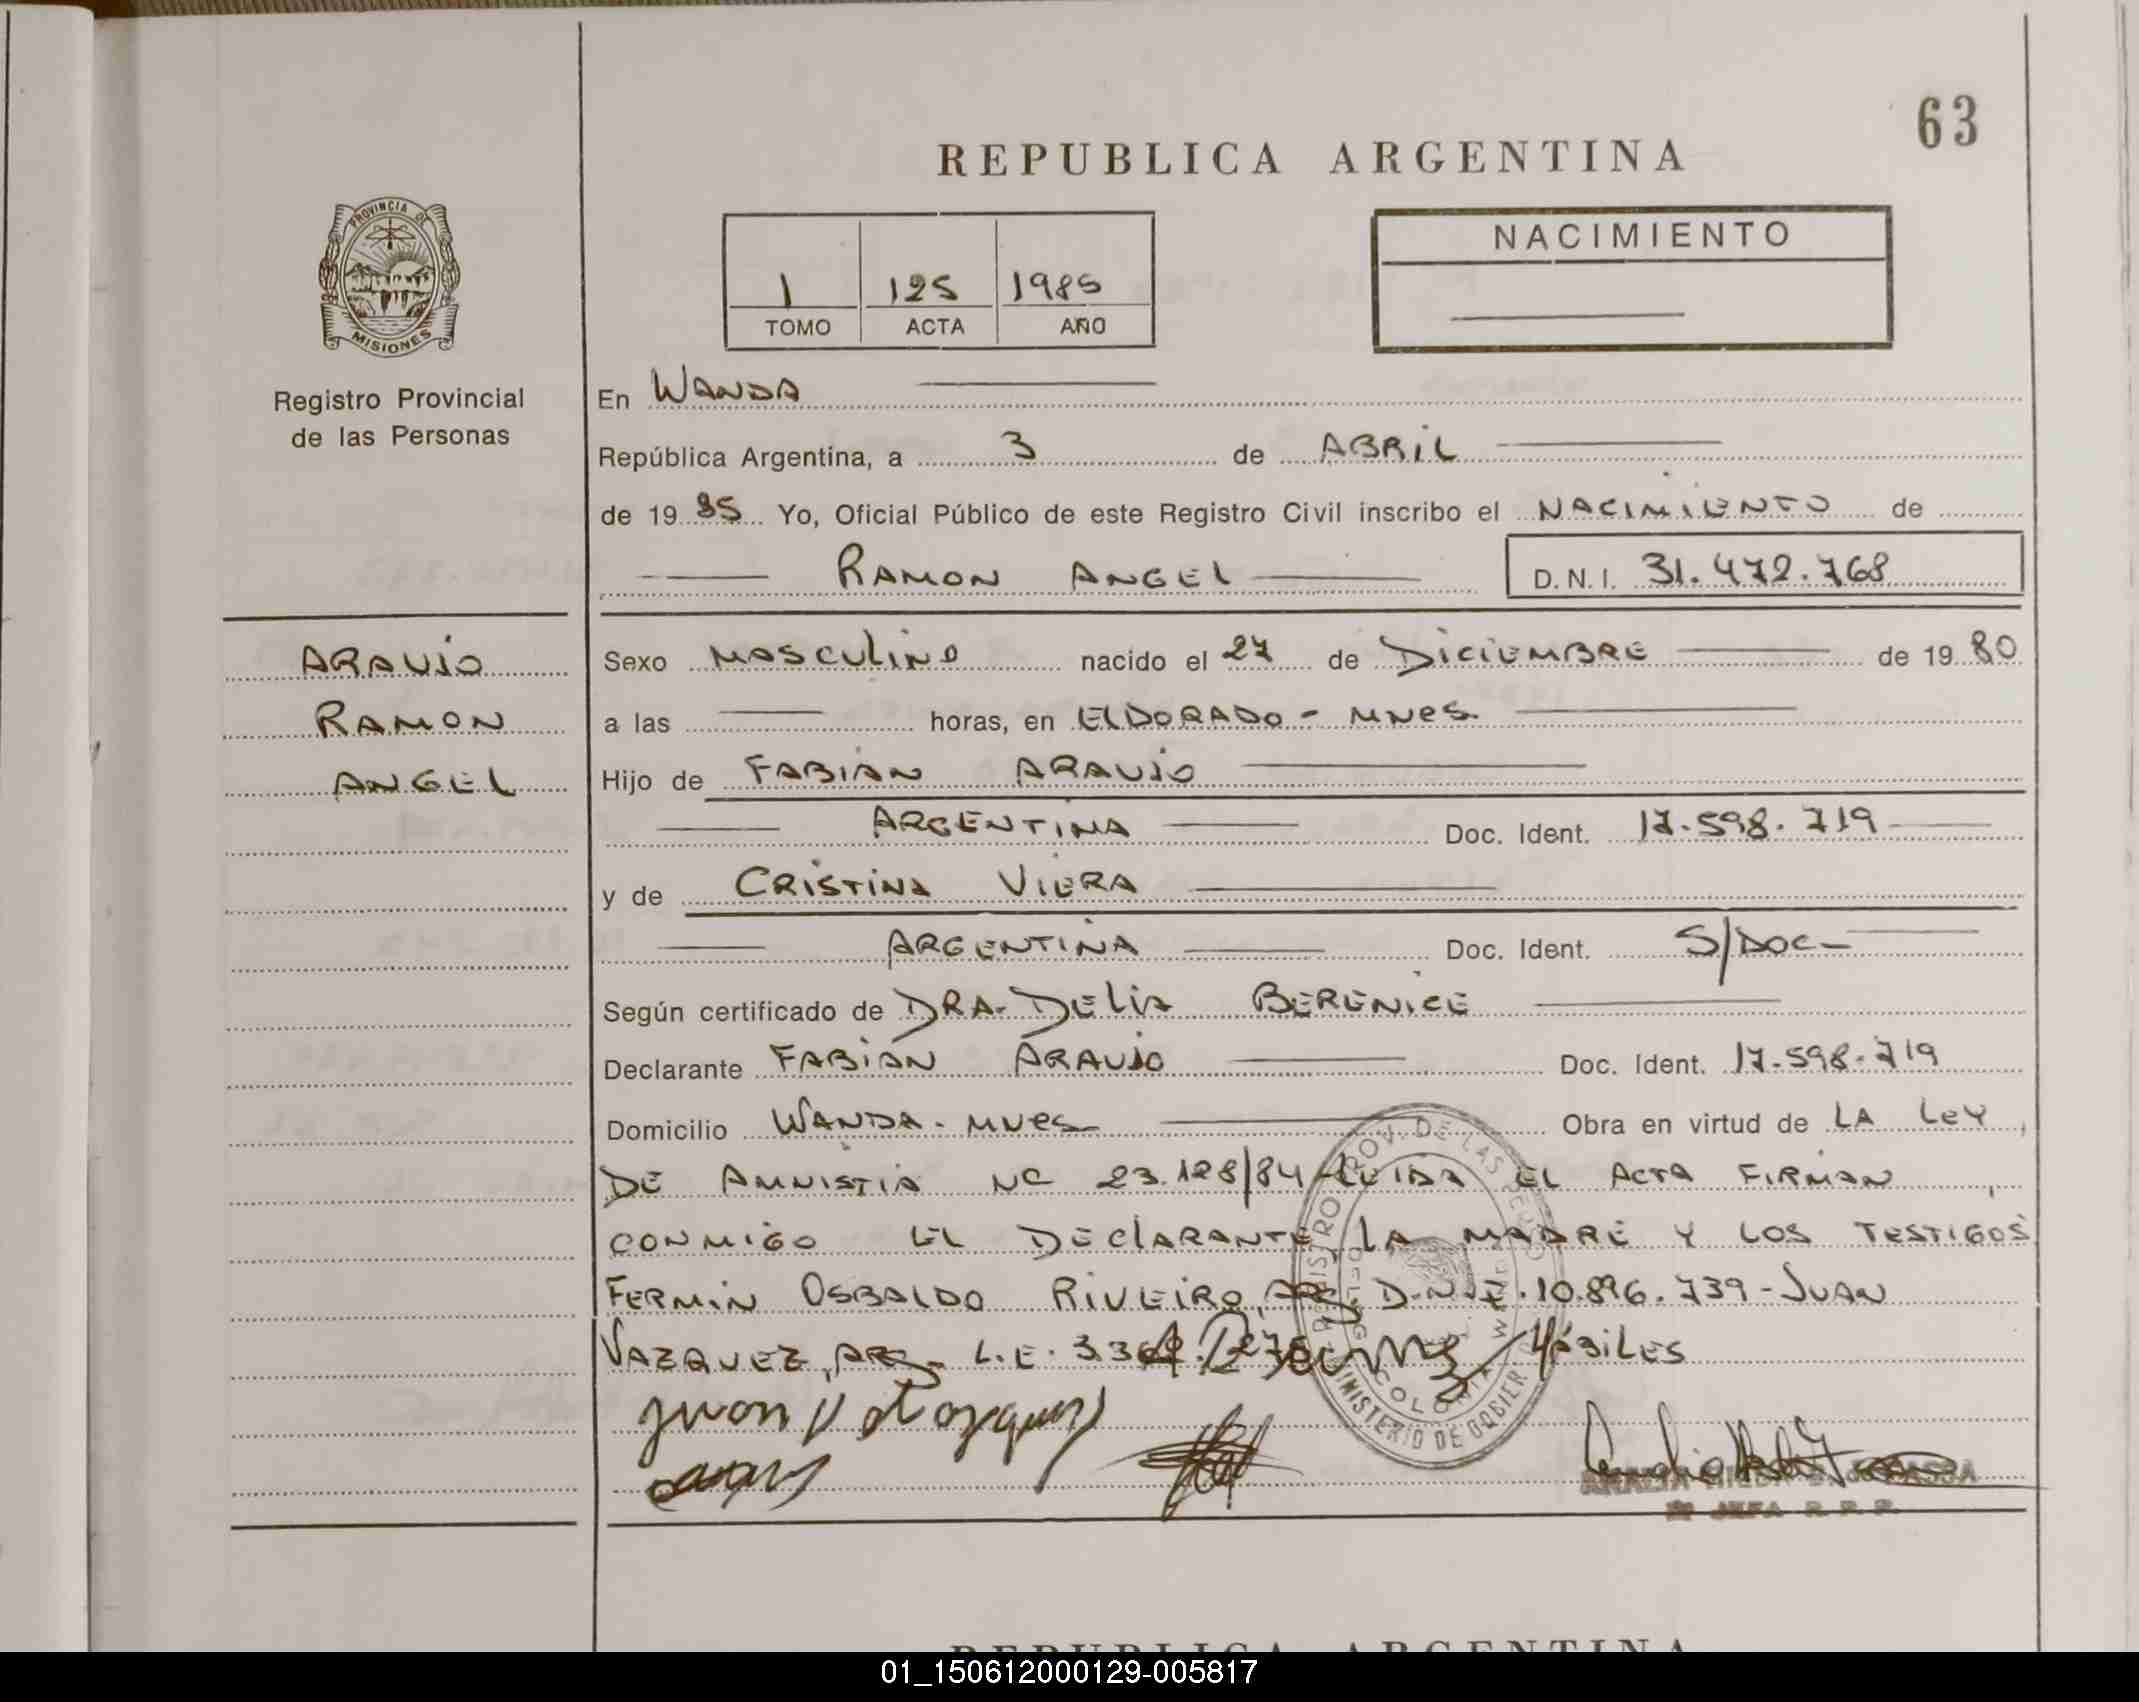 63
REPUBLICA ARGENTINA
PROVINCIA DE
MISIONES
Registro Provincial
de las Personas
1 125 1985
TOMO ACTA AÑO
NACIMIENTO
En WANDA
República Argentina, a 3 de ABRIL
de 19 85 Yo, Oficial Público de este Registro Civil inscribo el NACIMIENTO de
RAMON ANGEL D.N.I. 31.472.768
ARAUJO
RAMON
ANGEL
Sexo MASCULINO nacido el 27 de DICIEMBRE de 19 80
a las horas, en ELDORADO - MNES.
Hijo de FABIAN ARAUJO
ARGENTINA Doc. Ident. 17.598.719
y de CRISTINA VIERA
ARGENTINA Doc. Ident. S/DOC-
Según certificado de DRA. DELIA BERENICE
Declarante FABIAN ARAUJO Doc. Ident. 17.598.719
Domicilio WANDA - MNES Obra en virtud de LA LEY
DE AMNISTIA Nº 23.128/84 LEIDA EL ACTA FIRMAN
CONMIGO EL DECLARANTE, LA MADRE Y LOS TESTIGOS
FERMIN OSBALDO RIVEIRO, ARG. D.N.I. 10.896.739 - JUAN
VAZQUEZ, ARG. L.E. HÁBILES
REPUBLICA ARGENTINA
01_150612000129-005817